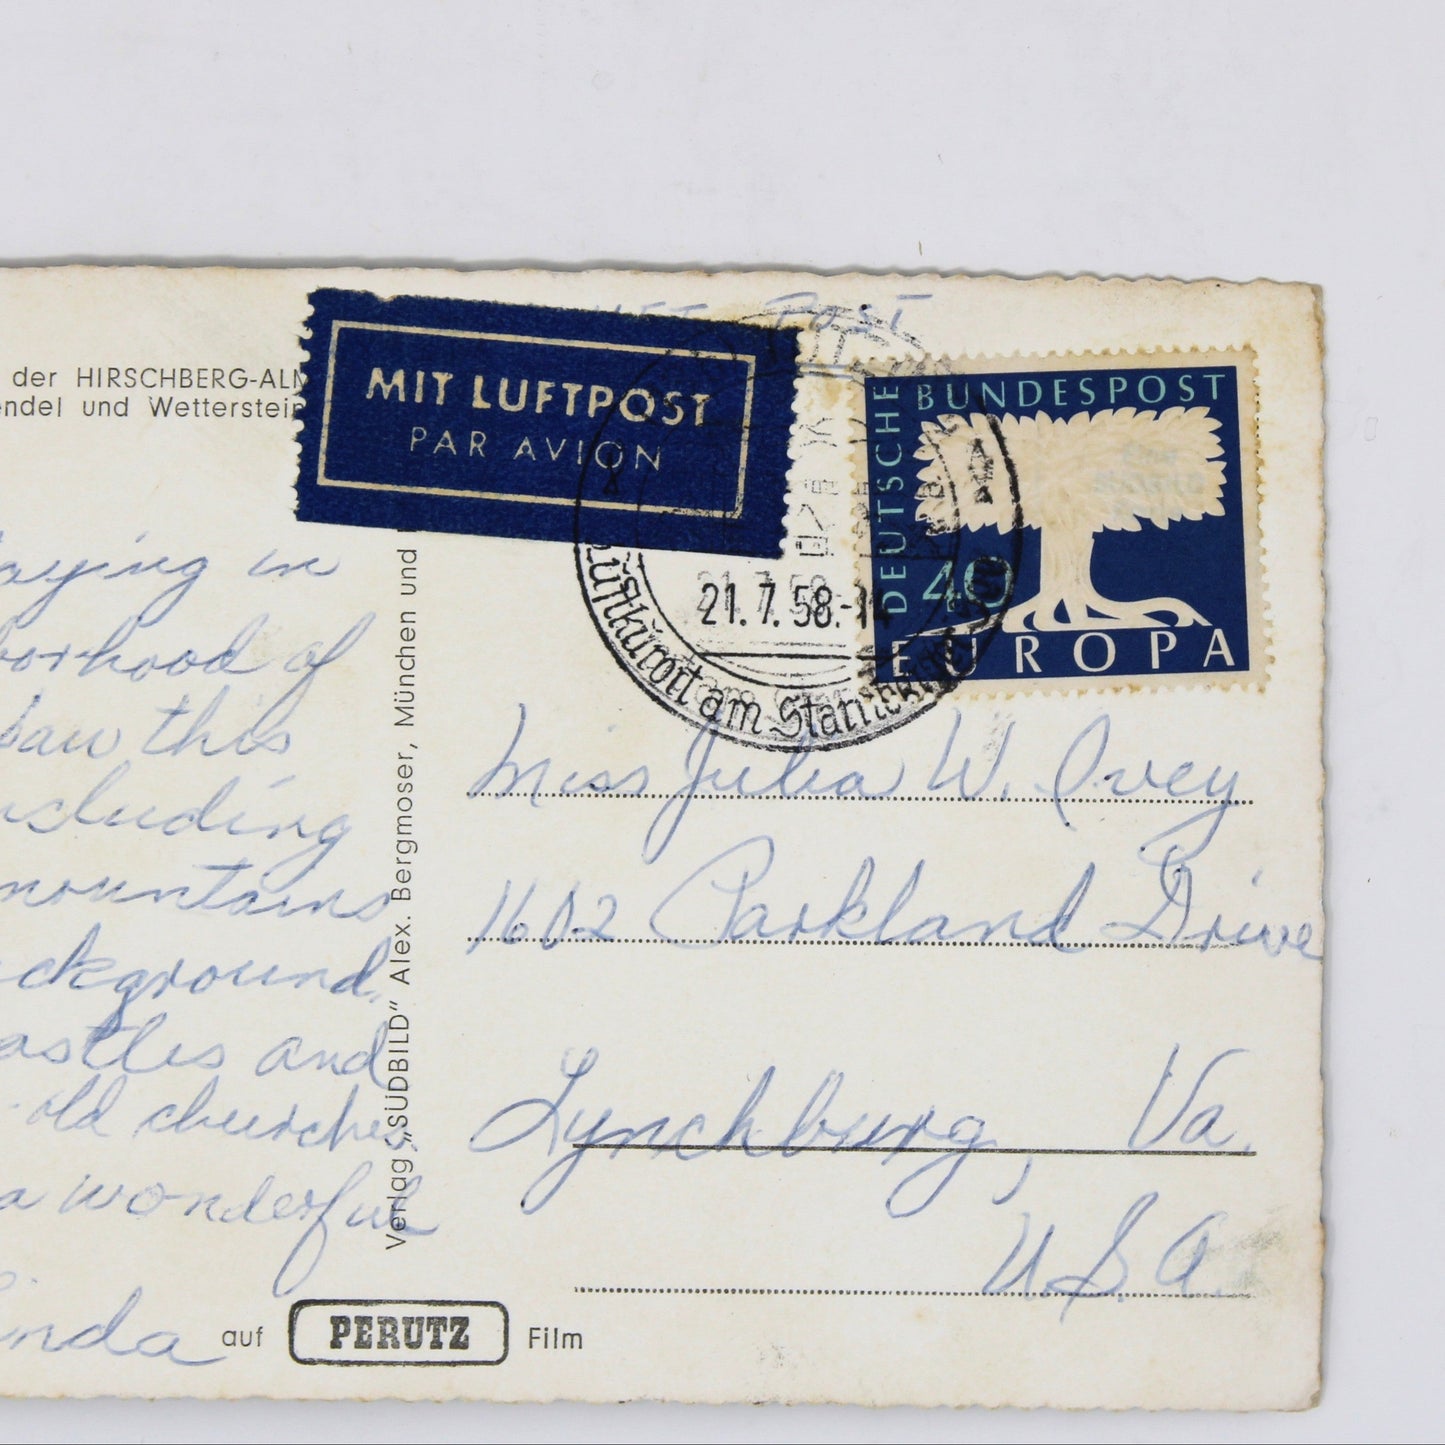 der HIRSCHBERG-ALM
endel und Wetterstein
MIT LUFTPOST
PAR AVION
POST
DEUTSCHE
BUNDESPOST
40
EUROPA
21.7.58.-14
Luftkurort am Starnberger
aying in
borhood of
saw this
ncluding
mountains
ckground,
castles and
old churches.
a wonderful
Linda
Verlag „SÜDBILD“ Alex. Bergmoser, München und
auf PERUTZ Film
Miss Julia W. Ivey
1602 Parkland Drive
Lynchburg, Va.
U.S.A.